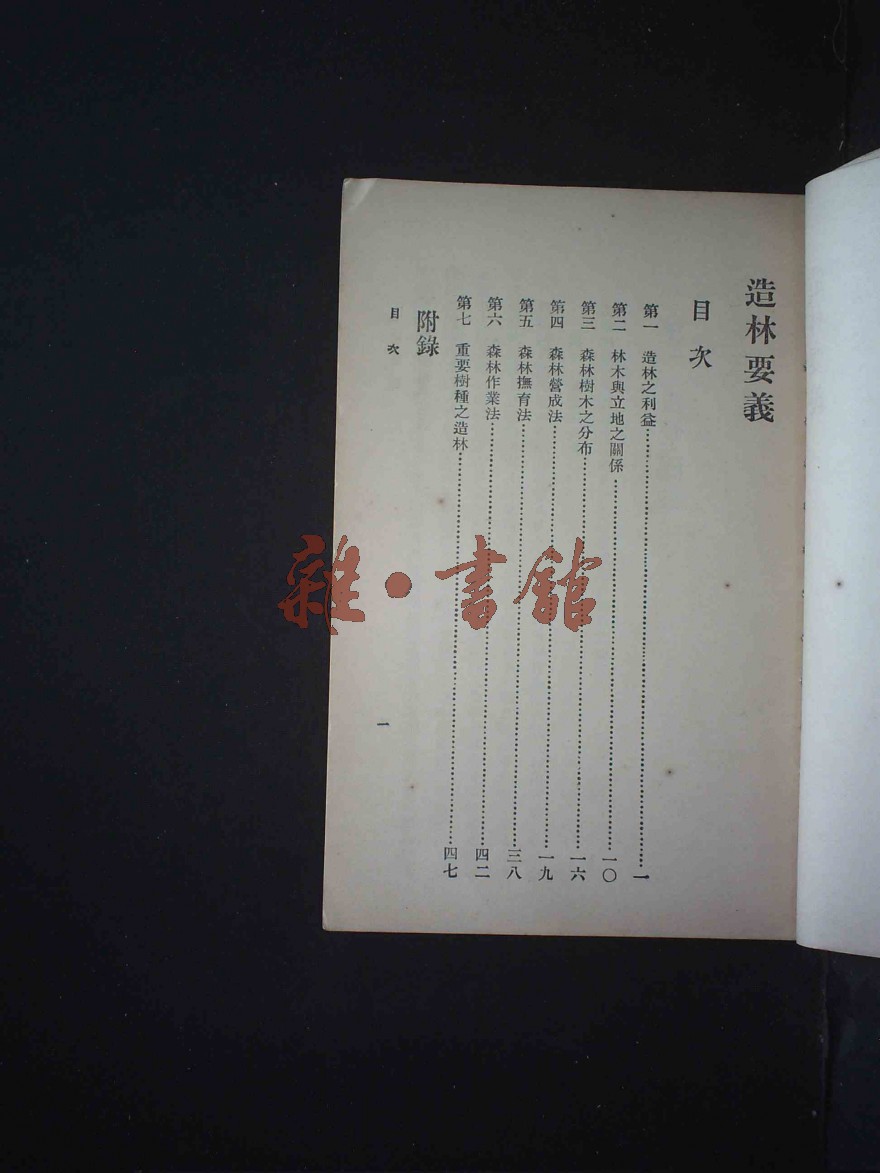 造林要義
目次
第一　造林之利益…………一
第二　林木與立地之關係…………一〇
第三　森林樹木之分布…………一六
第四　森林營成法…………一九
第五　森林撫育法…………三八
第六　森林作業法…………四二
第七　重要樹種之造林…………四七
附錄
目次
一
雜·書館